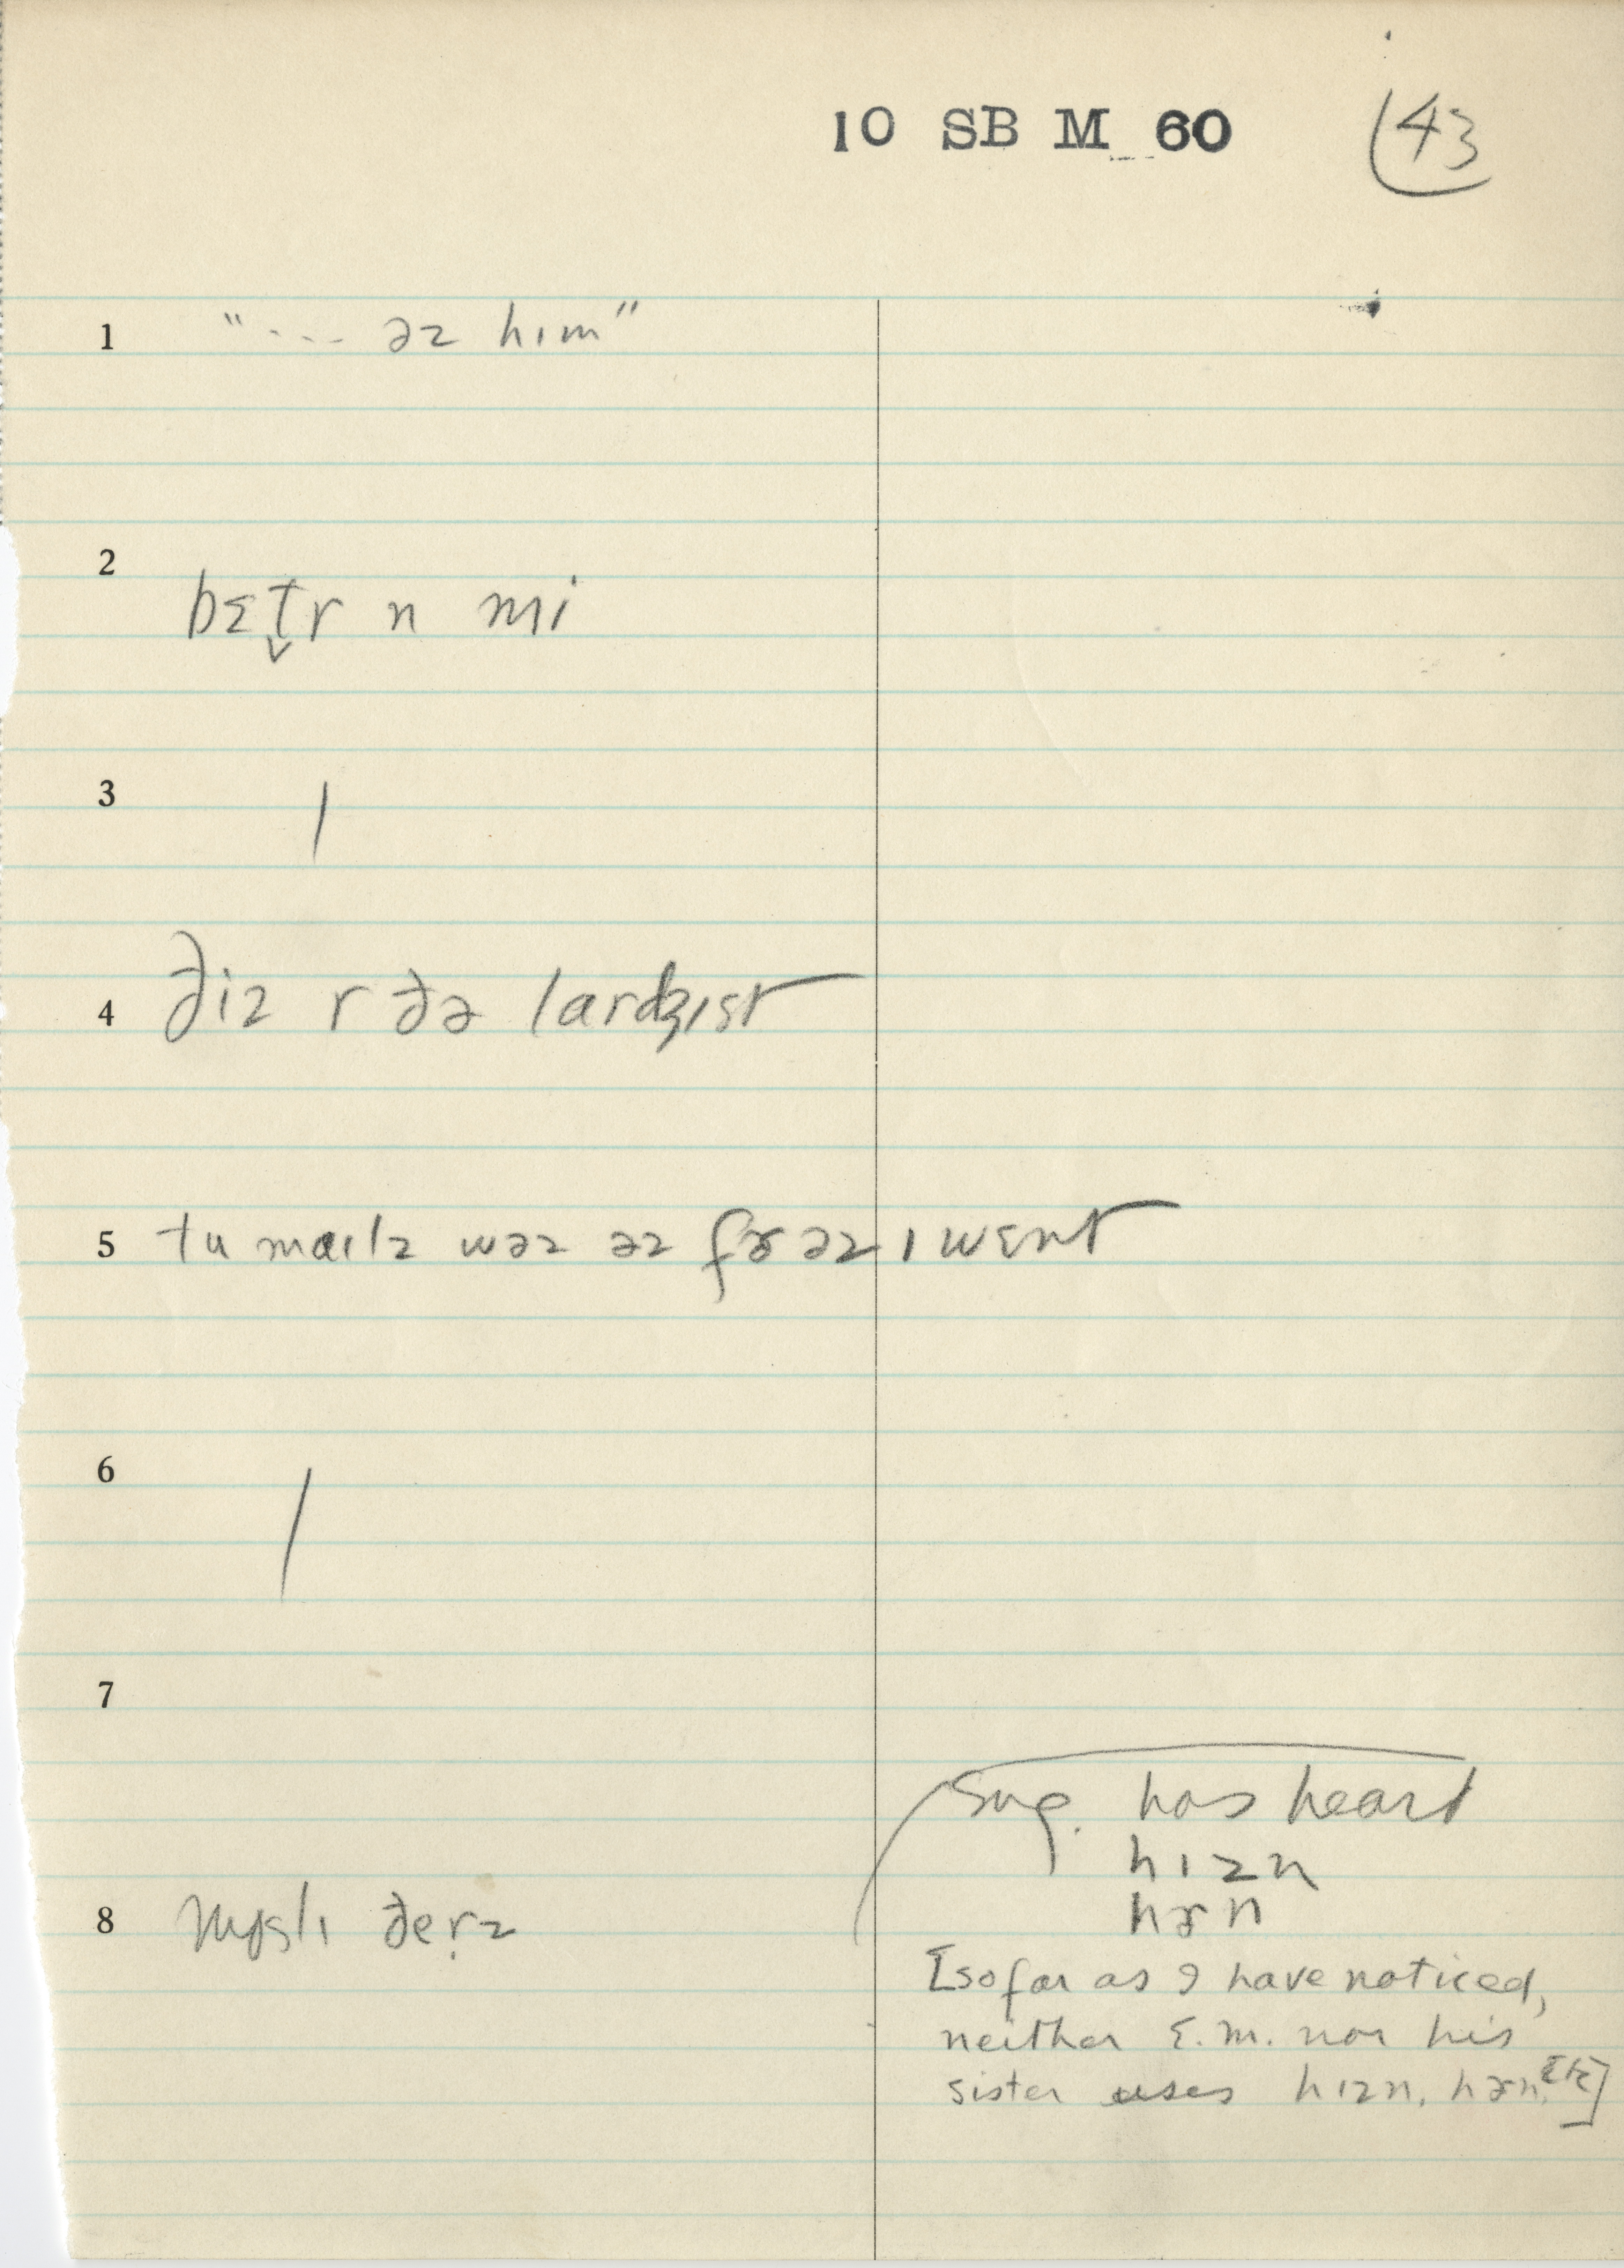 10 SB M 60 43
1 "--- əz hɪm"
2 bɛt̬r n mi
3 /
4 ðiz r ðə lardʒɪst
5 tu maɪlz wəz əz fɚ əz ɪ wɛnt
6 /
7
sug. has heard
hɪzn
hɚn
8 ðeṛz
[so far as I have noticed,
neither E.M. nor his
sister uses hɪzn, hɚn, Etc]